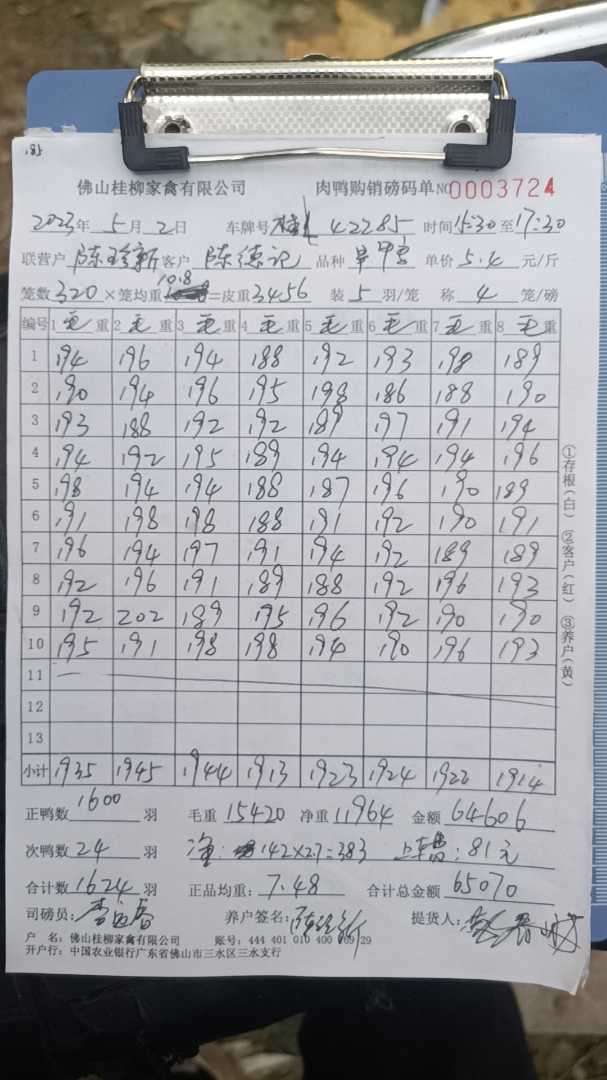 185
佛山桂柳家禽有限公司 肉鸭购销磅码单 NO 0003724
2023年 5月 2日 车牌号 42285 时间 15:30 至 17:30
联营户 陈珍新 客户 陈德记 品种 单价 5.4 元/斤
笼数 320 ×笼均重 10.8 =皮重 3456 装 5 羽/笼 称 4 笼/磅
编号 1 毛 重 2 毛 重 3 毛 重 4 毛 重 5 毛 重 6 毛 重 7 毛 重 8 毛 重
1 194 196 194 188 192 193 198 189
2 190 194 196 195 198 186 188 190
3 193 188 192 192 189 197 191 194
4 194 192 195 189 194 194 194 196
5 198 194 194 188 187 196 190 189
6 191 198 198 188 191 192 190 191
7 196 194 197 191 194 192 189 189
8 192 196 191 189 188 192 196 193
9 192 202 189 195 196 192 190 190
10 195 191 198 198 194 190 196 193
11
12
13
小计 1935 1945 1944 1913 1923 1924 1922 1914
①存根(白) ②客户(红) ③养户(黄)
正鸭数 1600 羽 毛重 15420 净重 11964 金额 64606
次鸭数 24 羽 净: 142×2.7=383 上车费: 81元
合计数 1624 羽 正品均重: 7.48 合计总金额 65070
司磅员: 养户签名: 陈珍新 提货人:
户 名: 佛山桂柳家禽有限公司 账号: 444 401 010 400 029
开户行: 中国农业银行广东省佛山市三水区三水支行